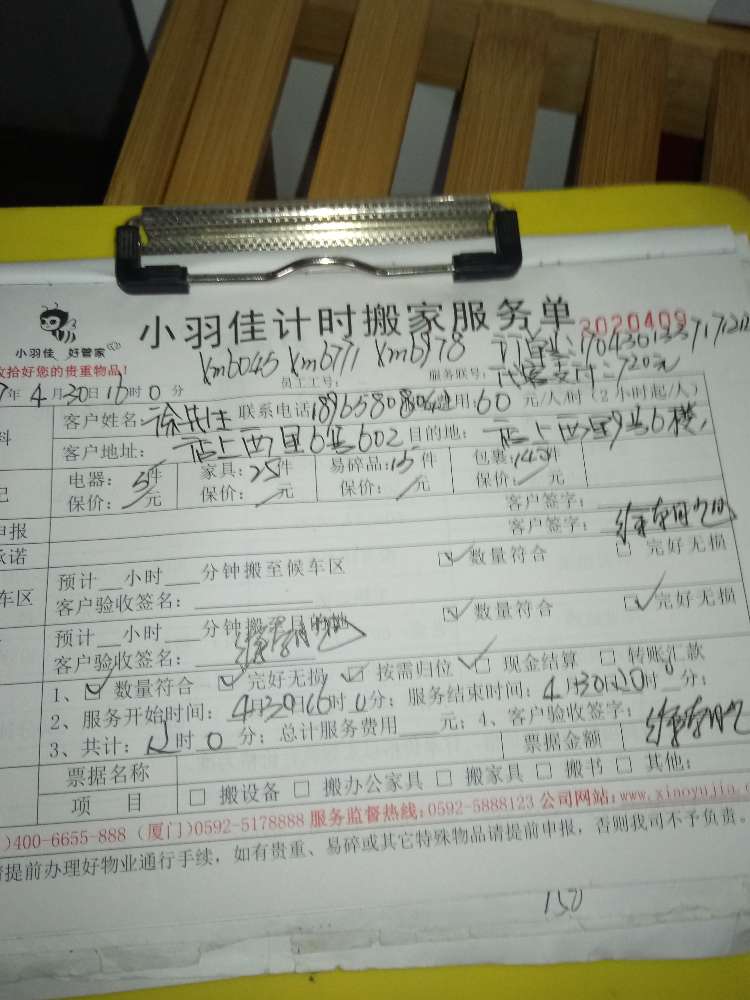 小羽佳计时搬家服务单 2020409
小羽佳 好管家
收拾好您的贵重物品!
Xm6045 Xm6771 Xm6978
员工工号: 服务联号:
代客支付: 720元
年 4 月 30 日 16 时 0 分
客户姓名: 联系电话 费用: 60 元/人/时 (2 小时起/人)
客户地址: 店上西里6号602 目的地: 店上西里9号6楼
电器: 5件 家具: 25件 易碎品: 15件 包裹: 件
保价: 元 保价: 元 保价: 元 保价: 元
客户签字:
申报 客户签字:
承诺
预计 小时 分钟搬至候车区 数量符合 完好无损
车区 客户验收签名:
预计 小时 分钟搬至 数量符合 完好无损
客户验收签名:
1、 数量符合 完好无损 按需归位 现金结算 转账汇款
2、服务开始时间: 4月30日16时0分; 服务结束时间: 4月30日20时0分;
3、共计: 时 0 分; 总计服务费用 元; 4、客户验收签字:
票据名称 票据金额
项 目 搬设备 搬办公家具 搬家具 搬书 其他:
)400-6655-888 (厦门)0592-5178888 服务监督热线:0592-5888123 公司网站:www.xiaoyujia.c
请提前办理好物业通行手续,如有贵重、易碎或其它特殊物品请提前申报,否则我司不予负责。
150